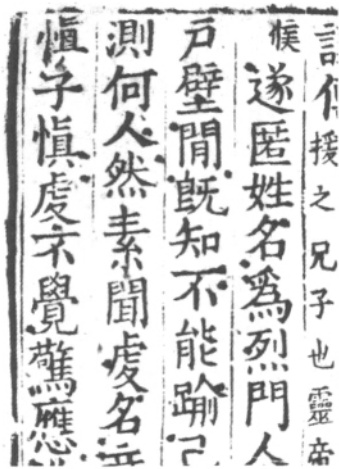 援之兄子也靈帝
侯遂匿姓名爲烈門人
戶壁閒既知不能踰
測何人然素聞虔名
愼子愼虔不覺驚應